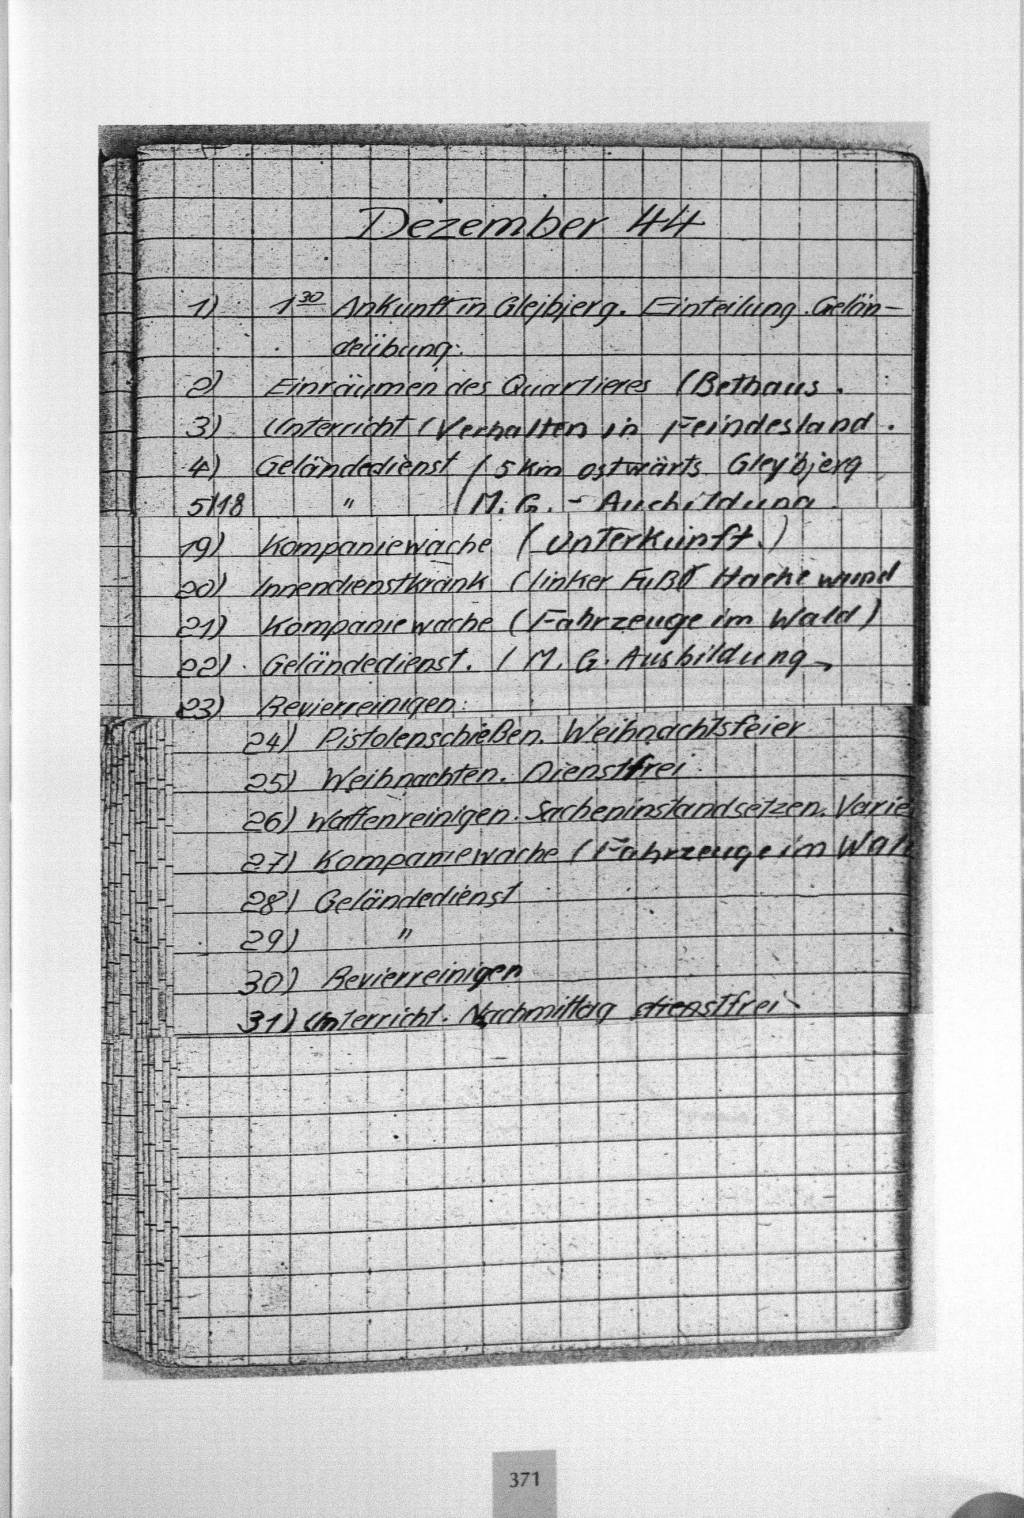 Dezember 44
1) 1 30 Ankunft in Glejbjerg. Einteilung. Gelän-
deübung.
2) Einräumen des Quartieres (Bethaus.
3) Unterricht (Verhalten in Feindesland.
4) Geländedienst (5 km ostwärts Glejbjerg
5/18 " (M. G. - Ausbildung.
19) Kompaniewache (Unterkunft.)
20) Innendienstkrank (linker Fuß Hacke wund
21) Kompaniewache (Fahrzeuge im Wald)
22) Geländedienst. (M. G. Ausbildung
23) Revierreinigen.
24) Pistolenschießen. Weihnachtsfeier
25) Weihnachten. Dienstfrei.
26) Waffenreinigen. Sacheninstandsetzen. Varie
27) Kompaniewache (Fahrzeuge im Wal
28) Geländedienst
29) "
30) Revierreinigen
31) Unterricht. Nachmittag dienstfrei
371